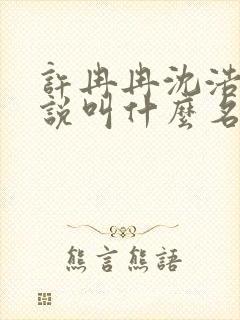 許冉冉沈浩
説叫什麼名
熊言熊語